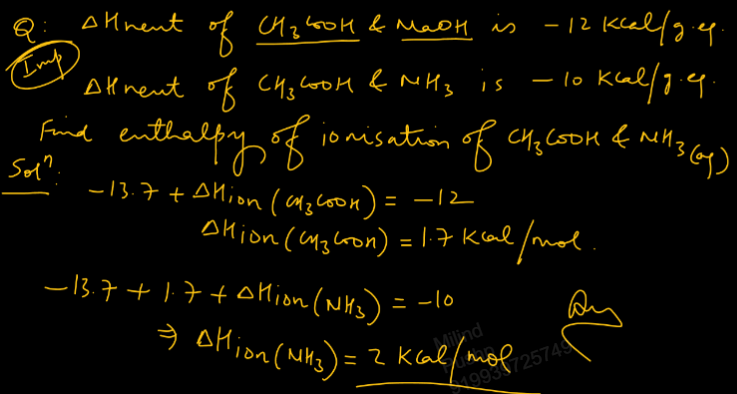 Q: ΔHneut of CH3COOH & NaOH is -12 Kcal/g.eq.
Imp
ΔHneut of CH3COOH & NH3 is -10 Kcal/g.eq.
Find enthalpy of ionisation of CH3COOH & NH3(aq)
Solⁿ:
-13.7 + ΔHion (CH3COOH) = -12
ΔHion (CH3COOH) = 1.7 Kcal/mol.
-13.7 + 1.7 + ΔHion (NH3) = -10
⇒ ΔHion (NH3) = 2 Kcal/mol
Ans
Milind